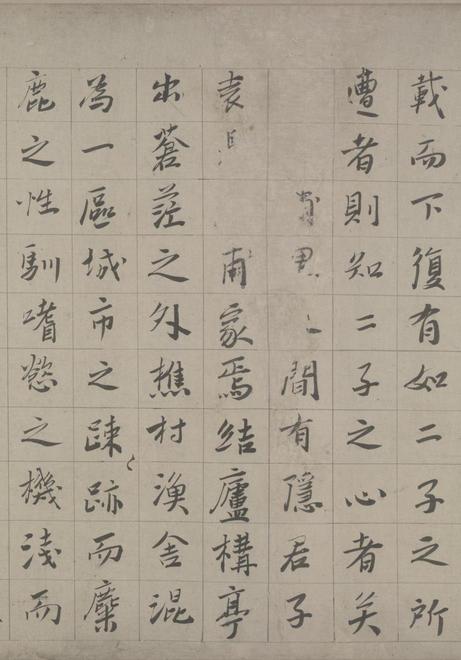 載而下復有如二子之所
遭者則知二子之心者矣
間有隱君子
袁甫家焉結廬構亭
出蒼茫之外樵村漁舍混
為一區城市之踈跡而麋
鹿之性馴嗜慾之機淺而